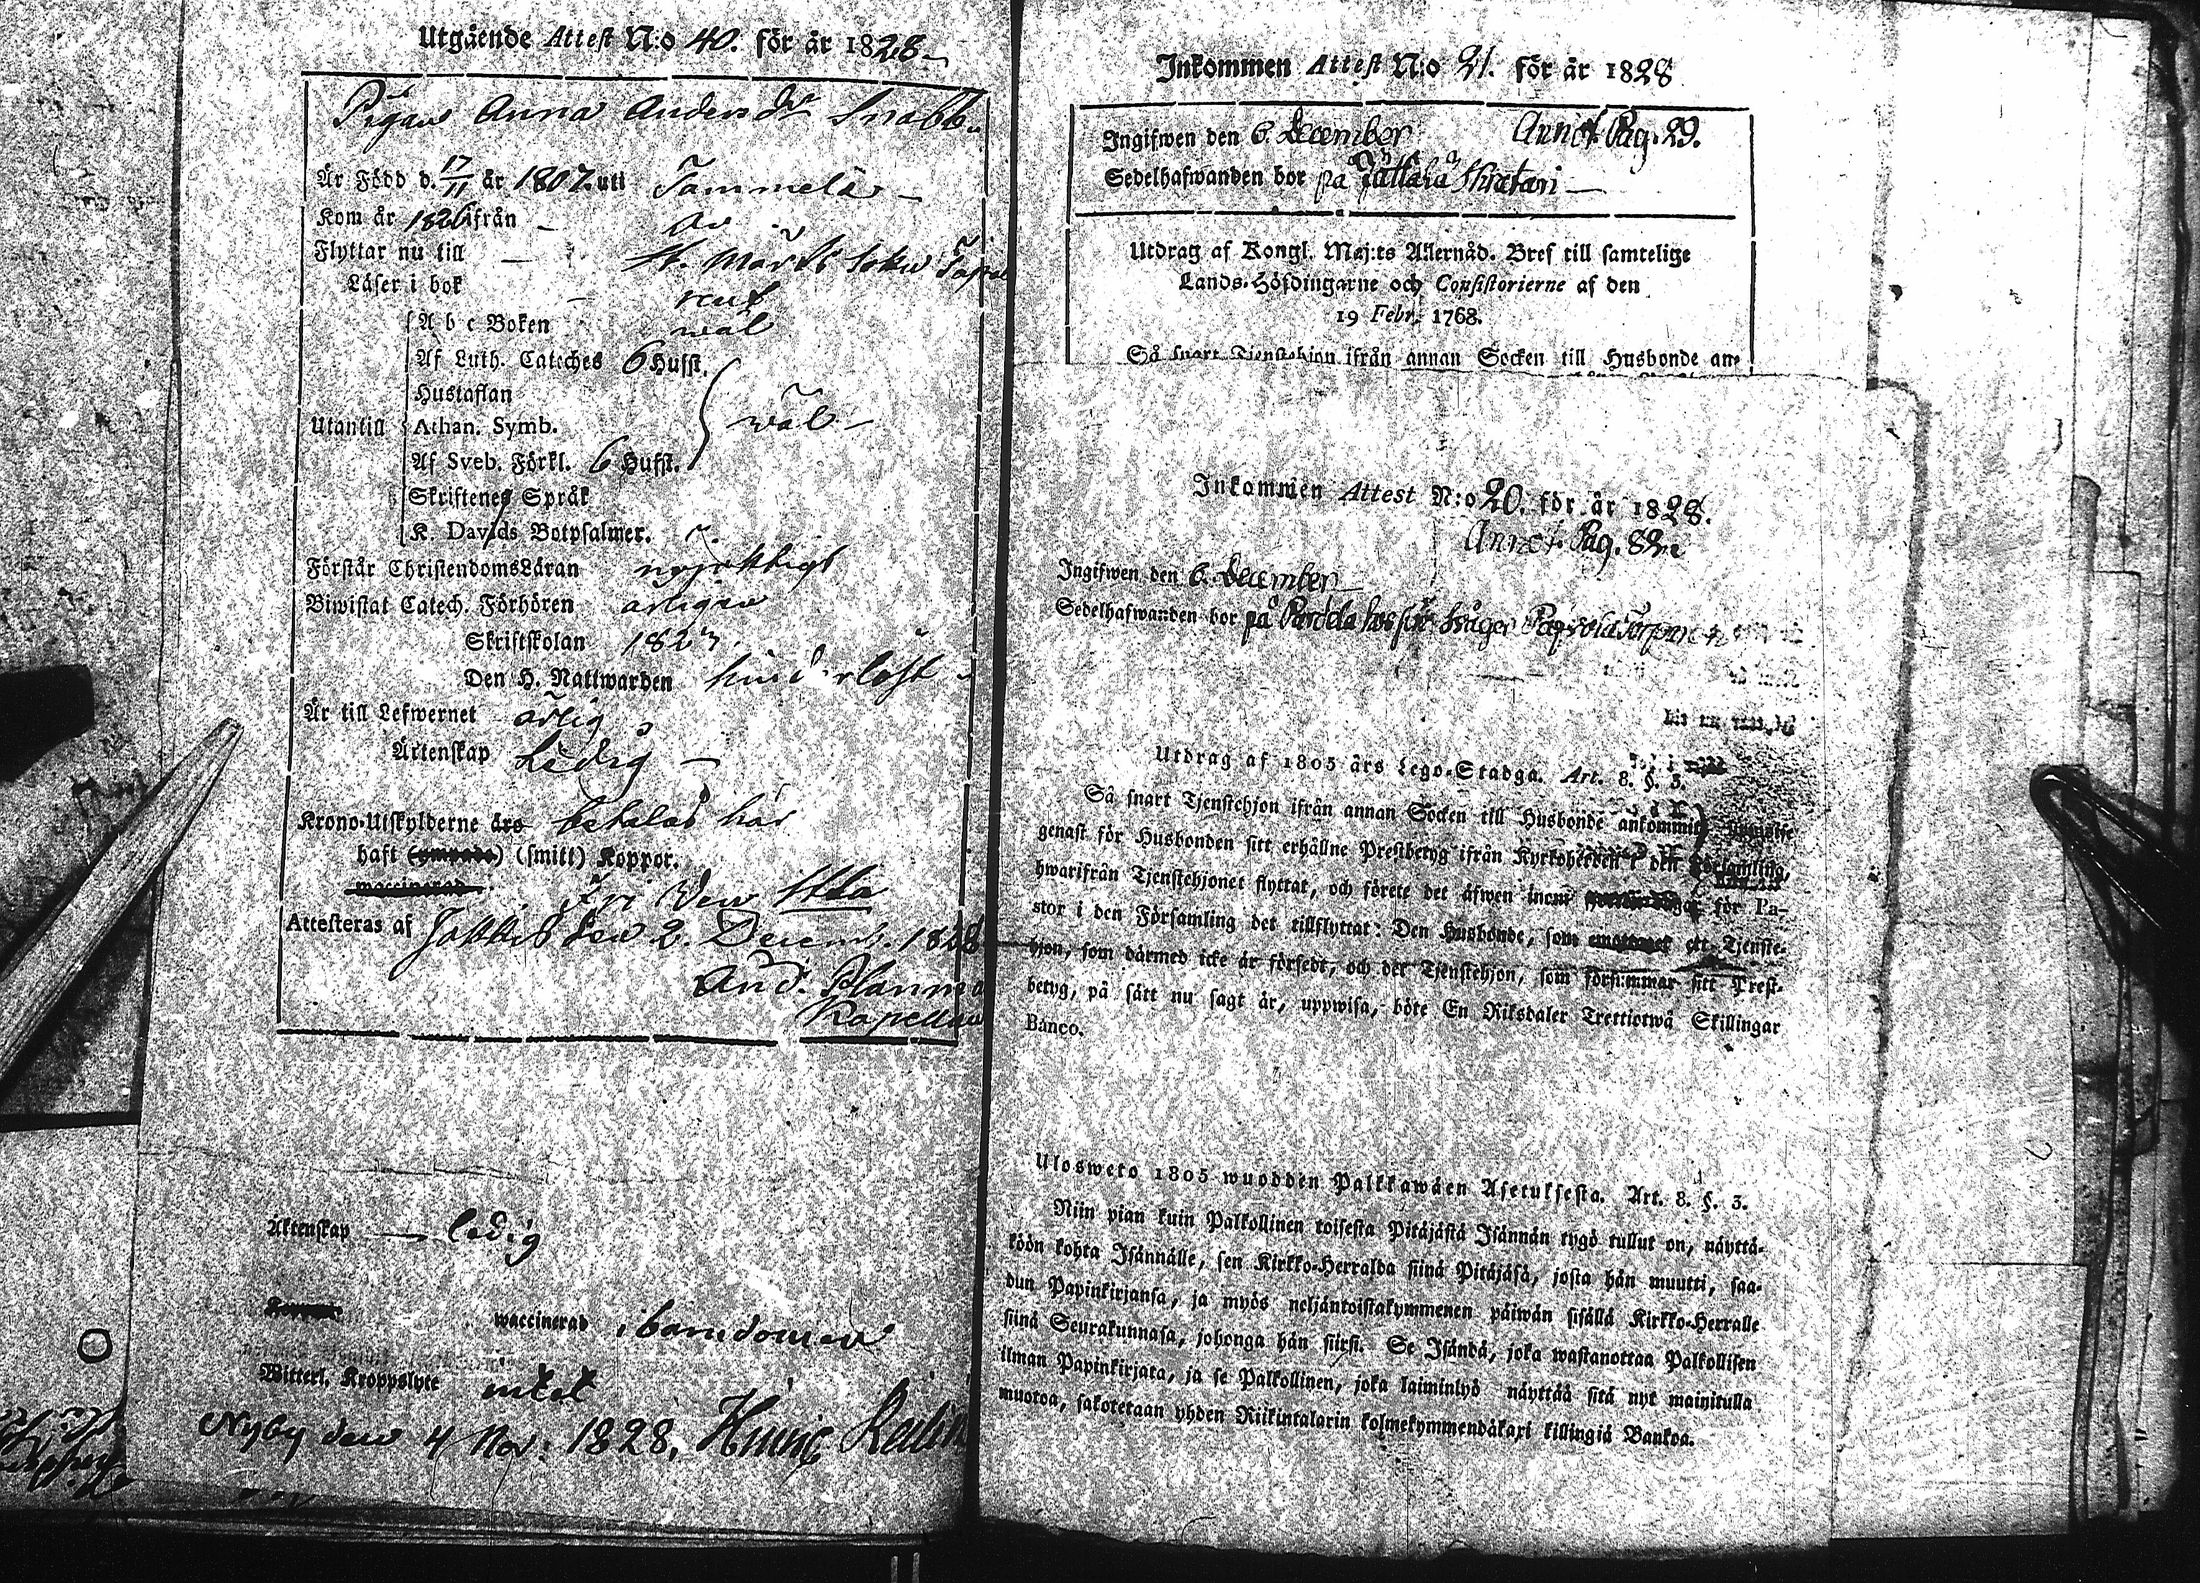 Utgående Attest N:o 40. för år 1828
Pigan Anna Andersdr Snabb
Är Född d. 17/11 år 1807. uti Tammela
Kom år 1826 ifrån —
Flyttar nu till — St. Mårtens Sokn
Läser i bok — rent
A b c Boken wäl
Af Luth. Cateches 6 Hufst.
Hustaflan
Utantill Athan. Symb. wäl
Af Sveb. Förkl. 6 Hufst.
Skriftenes Språk
K. Davids Botpsalmer.
Förstår ChristendomsLäran nöjaktigt
Biwistat Catech. Förhören årligen
Skriftskolan 1823.
Den H. Nattwarden hinderlöst
Är till Lefwernet ärlig
Äktenskap Ledig —
Krono-Utskylderne äro betalas här
haft (smitt) Koppor.
Fri den
Attesteras af Jokkis den 2. Decemb. 1828
And. Planma
Kapellan
Äktenskap — ledig
waccinerad i barndomen
Witterl. Kroppslyte intet
Nyby den 4 Nov. 1828.
Inkommen Attest N:o 21. för år 1828
Ingifwen den 6. December Annot. Pag. 29.
Sedelhafwanden bor på
Utdrag af Kongl. Maj:ts Allernåd. Bref till samtelige
Lands-Höfdingarne och Consistorierne af den
19 Febr. 1768.
Så snart Tjenstehjon ifrån annan Socken till Husbonde an-
Inkommen Attest N:o 20. för år 1828.
Annot. Pag. 82
Ingifwen den 6. December
Sedelhafwanden bor på
Utdrag af 1805 års Lego-Stadga. Art. 8. §. 3.
Så snart Tjenstehjon ifrån annan Socken till Husbonde ankommit,
genast för Husbonden sitt erhållne Prestbetyg ifrån Kyrkoherren i den Församling,
hwarifrån Tjenstehjonet flyttat, och förete det äfwen inom för Pa-
stor i den Församling det tillflyttat: Den Husbonde, som emottager ett Tjenste-
hjon, som därmed icke är försedt, och det Tjenstehjon, som försummar sitt Prest-
betyg, på sätt nu sagt är, uppwisa, böte En Riksdaler Trettiotwå Skillingar
Banco.
Ulosweto 1805 wuodden Palkkawäen Asetuksesta. Art. 8. §. 3.
Niin pian kuin Palkollinen toisesta Pitäjästä Isännän tygö tullut on, näyttä-
köön kohta Isännälle, sen Kirkko-Herralda siinä Pitäjäsä, josta hän muutti, saa-
dun Papinkirjansa, ja myös neljäntoistakymmenen päiwän sisällä Kirkko-Herralle
siinä Seurakunnasa, johonga hän siirsi. Se Isändä, joka wastanottaa Palkollisen
ilman Papinkirjata, ja se Palkollinen, joka laiminlyö näyttää sitä nyt mainitulla
muotoa, sakotetaan yhden Riikintalarin kolmekymmendäkaxi killingiä Bankoa.